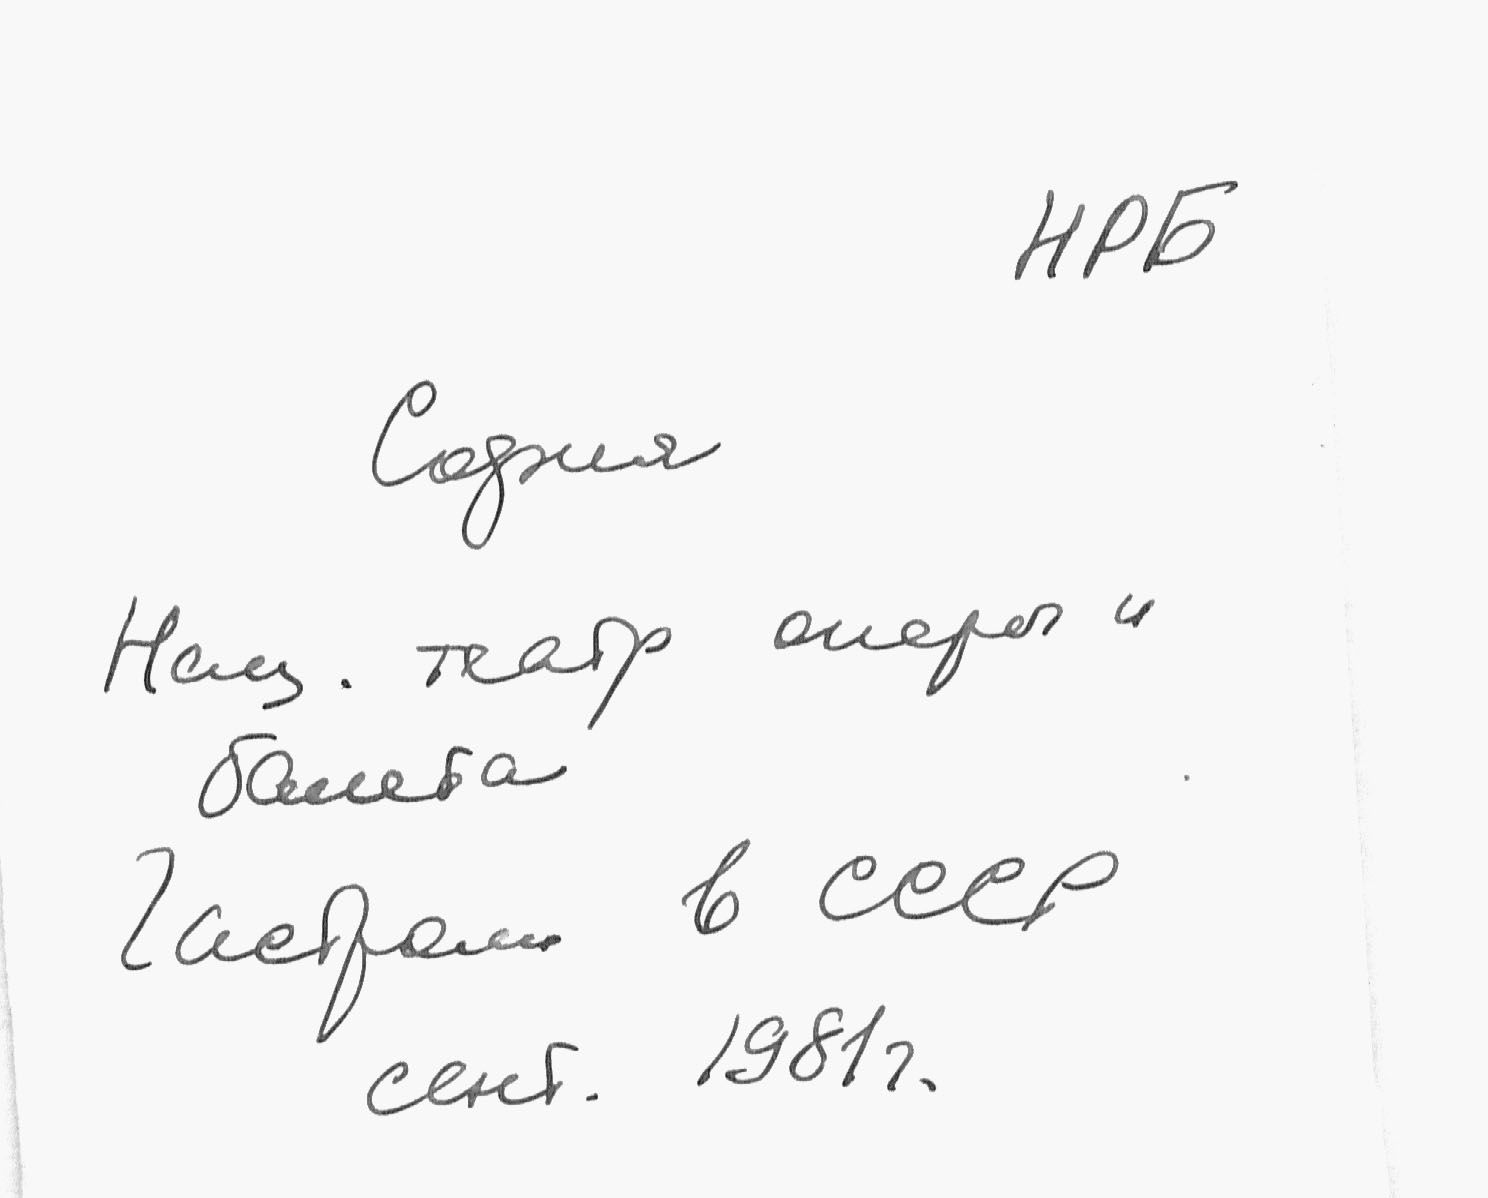 НРБ
София
Нац. театр оперы и
балета
Гастроли в СССР
сент. 1981 г.